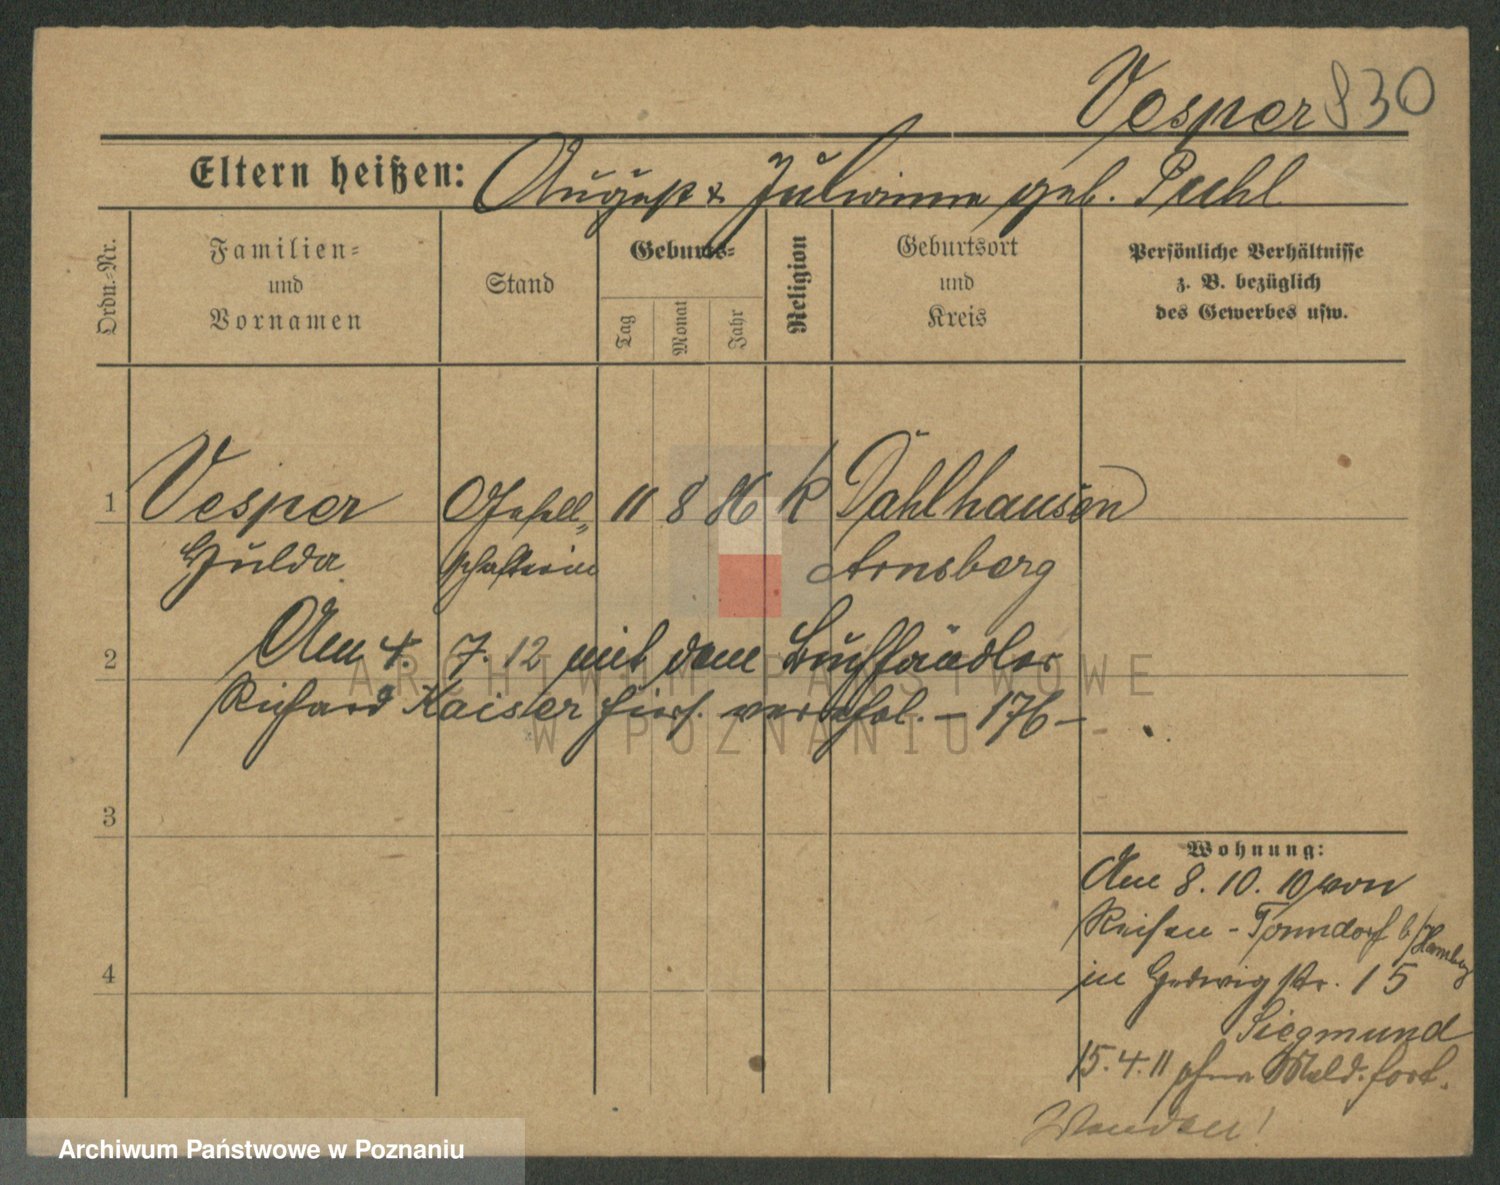 Vesper 830
Eltern heißen: August & Julianne geb. Puhl
Ordn.-Nr.
Familien-
und
Vornamen
Stand
Geburts-
Tag
Monat
Jahr
Religion
Geburtsort
und
Kreis
Persönliche Verhältnisse
z. B. bezüglich
des Gewerbes usw.
1 Vesper Gesell- 11 8 86 k Dahlhausen
Hulda schafterin Arnsberg
2 Am 4. 7. 12 mit dem Buchhändler
Richard Kaiser hiers. verehel. - 176 -
3
4
Wohnung:
Am 8. 10. 10 von
Reisen - Tonndorf b/Hamburg
in Hedwigstr. 15
Siegmund
15. 4. 11 ohne Meld. fort.
Wenden!
ARCHIWUM PAŃSTWOWE
W POZNANIU
Archiwum Państwowe w Poznaniu